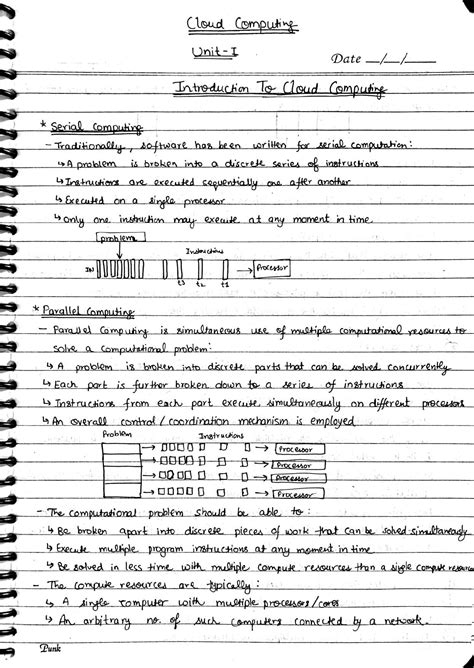 Cloud Computing
Unit-I
Date __/__/__
Introduction To Cloud Computing
* Serial Computing
- Traditionally, software has been written for serial computation:
↳ A problem is broken into a discrete series of instructions
↳ Instructions are executed sequentially one after another
↳ Executed on a single processor
↳ Only one instruction may execute at any moment in time.
problem
Instructions
IN
→ Processor
t3 t2 t1
* Parallel Computing
- Parallel Computing is simultaneous use of multiple computational resources to
solve a computational problem:
↳ A problem is broken into discrete parts that can be solved concurrently
↳ Each part is further broken down to a series of instructions
↳ Instructions from each part execute simultaneously on different processors
↳ An overall control/coordination mechanism is employed
Problem Instructions
→ Processor
→ Processor
→ Processor
→ Processor
- The computational problem should be able to:
↳ Be broken apart into discrete pieces of work that can be solved simultaneously
↳ Execute multiple program instructions at any moment in time
↳ Be solved in less time with multiple compute resources than a single compute resource
- The compute resources are typically:
↳ A single computer with multiple processors/cores
↳ An arbitrary no. of such computers connected by a network.
Punk